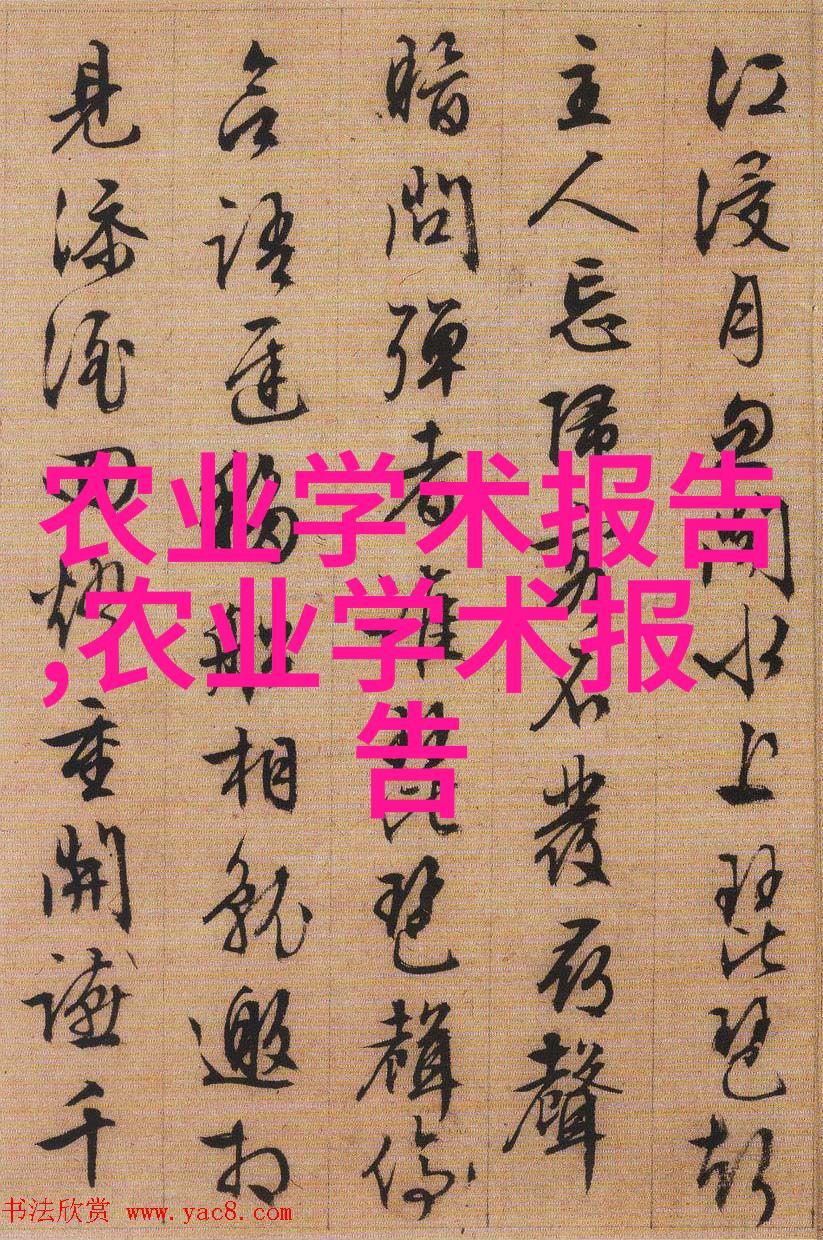 江浸月忽聞水上琵琶聲
主人忘歸客不發尋聲
暗問彈者誰琵琶聲停
語遲移船相就邀相
見添酒回燈重開讌千
农业学术报告
,农业学术报
告
书法欣赏 www.yac8.com